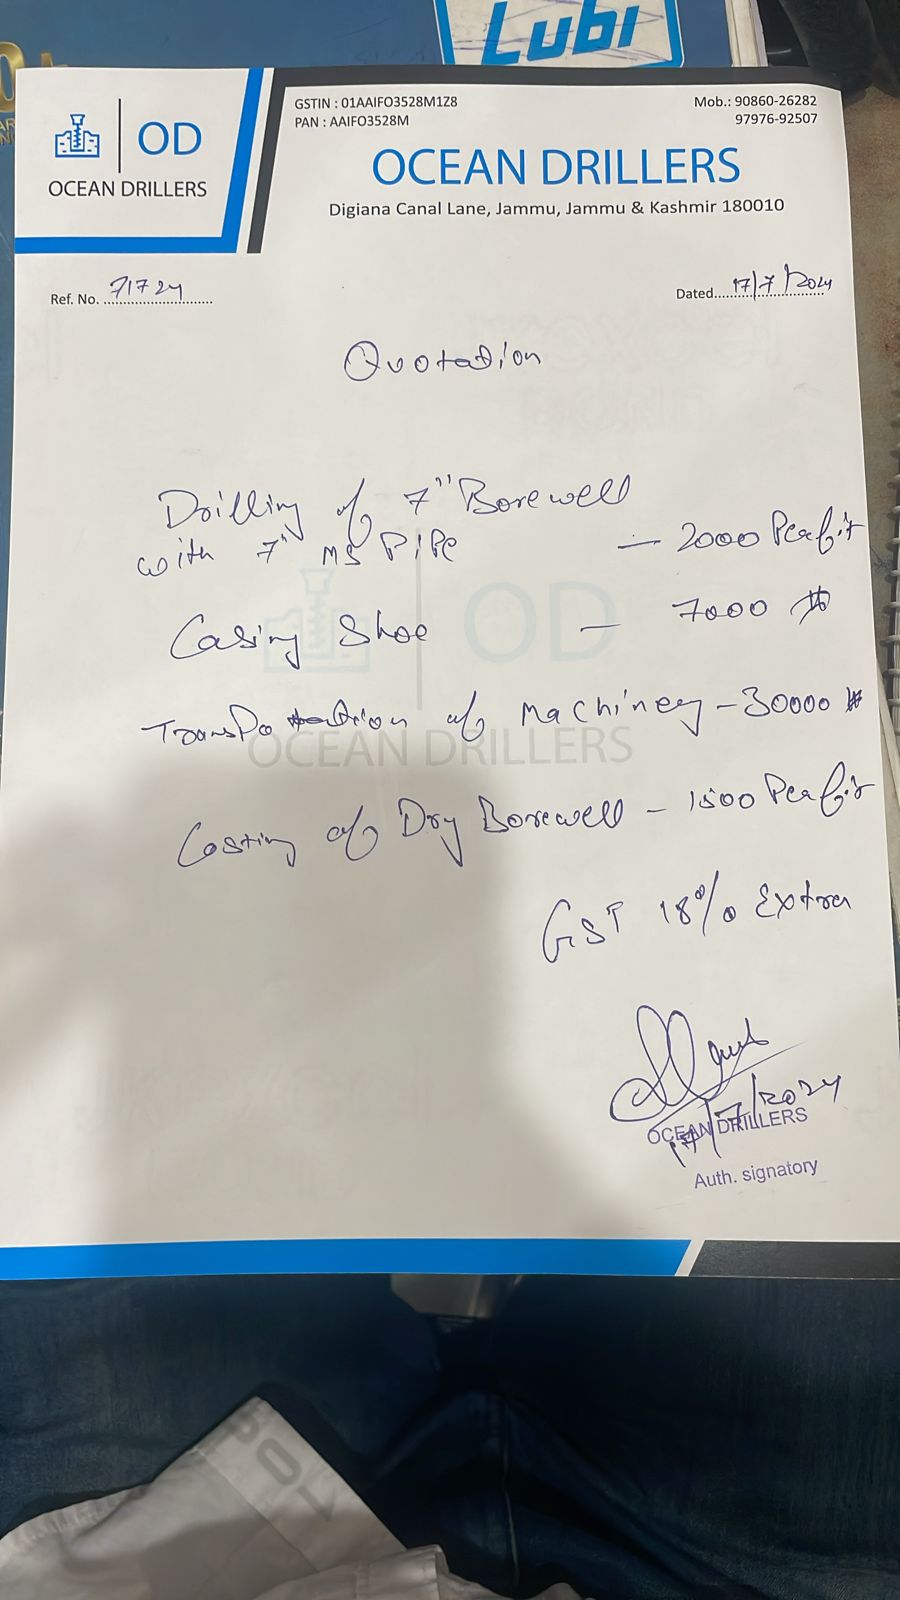 Lubi
GSTIN : 01AAIFO3528M1Z8
PAN : AAIFO3528M
Mob.: 90860-26282
97976-92507
OD
OCEAN DRILLERS
OCEAN DRILLERS
Digiana Canal Lane, Jammu, Jammu & Kashmir 180010
Ref. No. 71724
Dated 17/7/2024
Quotation
Drilling of 7" Borewell
with 7" MS PiPe — 2000 Per fit
Casing Shoe — 7000
of Machinery - 30000
Costing of Dry Borewell - 1500 Per fit
OD
OCEAN DRILLERS
GST 18% Extra
17/7/2024
OCEAN DRILLERS
Auth. signatory